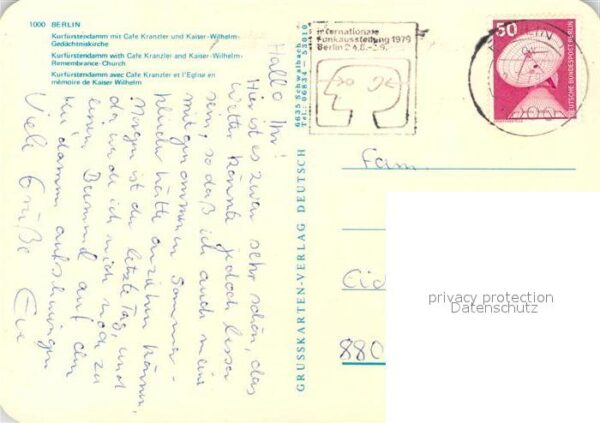 1000 BERLIN
Kurfürstendamm mit Cafe Kranzler und Kaiser-Wilhelm-
Gedächtniskirche
Kurfürstendamm with Cafe Kranzler and Kaiser-Wilhelm-
Remembrance-Church
Kurfürstendamm avec Cafe Kranzler et l'Eglise en
mémoire de Kaiser Wilhelm
Hallo Ihr!
Hier ist es zwar sehr schön, das
Wetter könnte jedoch besser
sein, so daß ich auch meine
mitgenommenen Sommer-
kleider hätte anziehen können.
Morgen ist der letzte Tag, und
da werde ich mich noch zu
einem Bummel auf dem
Ku'damm aufschwingen
Viele Grüße
GRUSSKARTEN-VERLAG DEUTSCH
6635 Schwalbach
Tel.: 06834 / 53010
Internationale
Funkausstellung 1979
Berlin 24.8.-2.9.
50
DEUTSCHE BUNDESPOST BERLIN
Fam.
880
privacy protection
Datenschutz